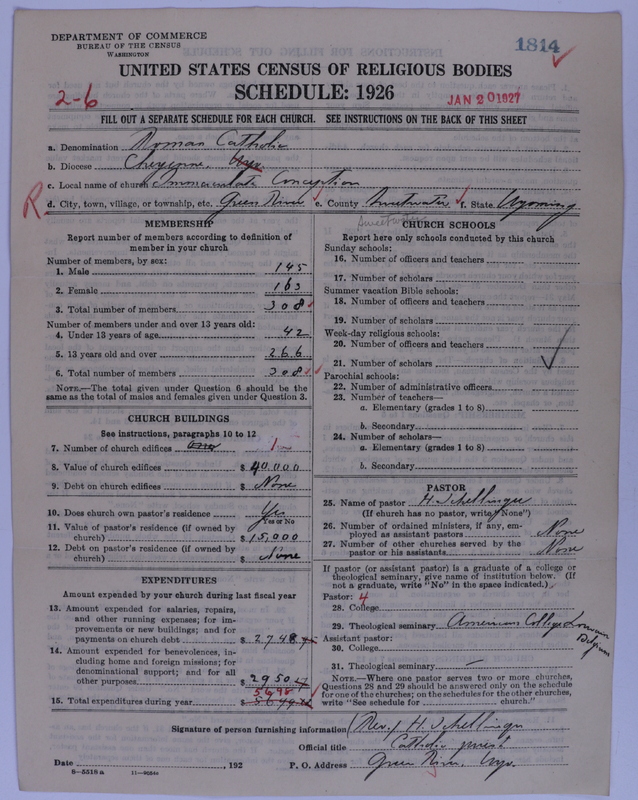 DEPARTMENT OF COMMERCE
BUREAU OF THE CENSUS
WASHINGTON
1814
UNITED STATES CENSUS OF RELIGIOUS BODIES
SCHEDULE: 1926
2-6
JAN 20 1927
FILL OUT A SEPARATE SCHEDULE FOR EACH CHURCH. SEE INSTRUCTIONS ON THE BACK OF THIS SHEET
a. Denomination Roman Catholic
b. Diocese Cheyenne, Wyo.
c. Local name of church Immaculate Conception
R d. City, town, village, or township, etc. Green River e. County Sweetwater f. State Wyoming
Sweetwater
MEMBERSHIP
Report number of members according to definition of member in your church
Number of members, by sex:
1. Male 145
2. Female 163
3. Total number of members 308
Number of members under and over 13 years old:
4. Under 13 years of age 42
5. 13 years old and over 266
6. Total number of members 308
NOTE.—The total given under Question 6 should be the
same as the total of males and females given under Question 3.
CHURCH BUILDINGS
See instructions, paragraphs 10 to 12
7. Number of church edifices One 1
8. Value of church edifices $ 40,000
9. Debt on church edifices $ None
10. Does church own pastor's residence Yes
Yes or No
11. Value of pastor's residence (if owned by
church) $ 15,000
12. Debt on pastor's residence (if owned by
church) $ None
EXPENDITURES
Amount expended by your church during last fiscal year
13. Amount expended for salaries, repairs,
and other running expenses; for im-
provements or new buildings; and for
payments on church debt $ 2748
14. Amount expended for benevolences, in-
cluding home and foreign missions; for
denominational support; and for all
other purposes $ 2950
5698
15. Total expenditures during year $
CHURCH SCHOOLS
Report here only schools conducted by this church
Sunday schools:
16. Number of officers and teachers
17. Number of scholars
Summer vacation Bible schools:
18. Number of officers and teachers
19. Number of scholars
Week-day religious schools:
20. Number of officers and teachers
21. Number of scholars
Parochial schools:
22. Number of administrative officers
23. Number of teachers—
a. Elementary (grades 1 to 8)
b. Secondary
24. Number of scholars—
a. Elementary (grades 1 to 8)
b. Secondary
PASTOR
25. Name of pastor H. Schellinger
(If church has no pastor, write "None")
26. Number of ordained ministers, if any, em-
ployed as assistant pastors None
27. Number of other churches served by the
pastor or his assistants None
If pastor (or assistant pastor) is a graduate of a college or
theological seminary, give name of institution below. (If
not a graduate, write "No" in the space indicated.)
Pastor: 4
28. College
29. Theological seminary American College Louvain Belgium
Assistant pastor:
30. College
31. Theological seminary —
NOTE.—Where one pastor serves two or more churches,
Questions 28 and 29 should be answered only on the schedule
for one of the churches; on the schedules for the other churches,
write "See schedule for church."
Signature of person furnishing information Rev. J. H. Schellinger
Official title Catholic priest
Date , 192 P. O. Address Green River, Wyo.
8-5518 a 11-9054a